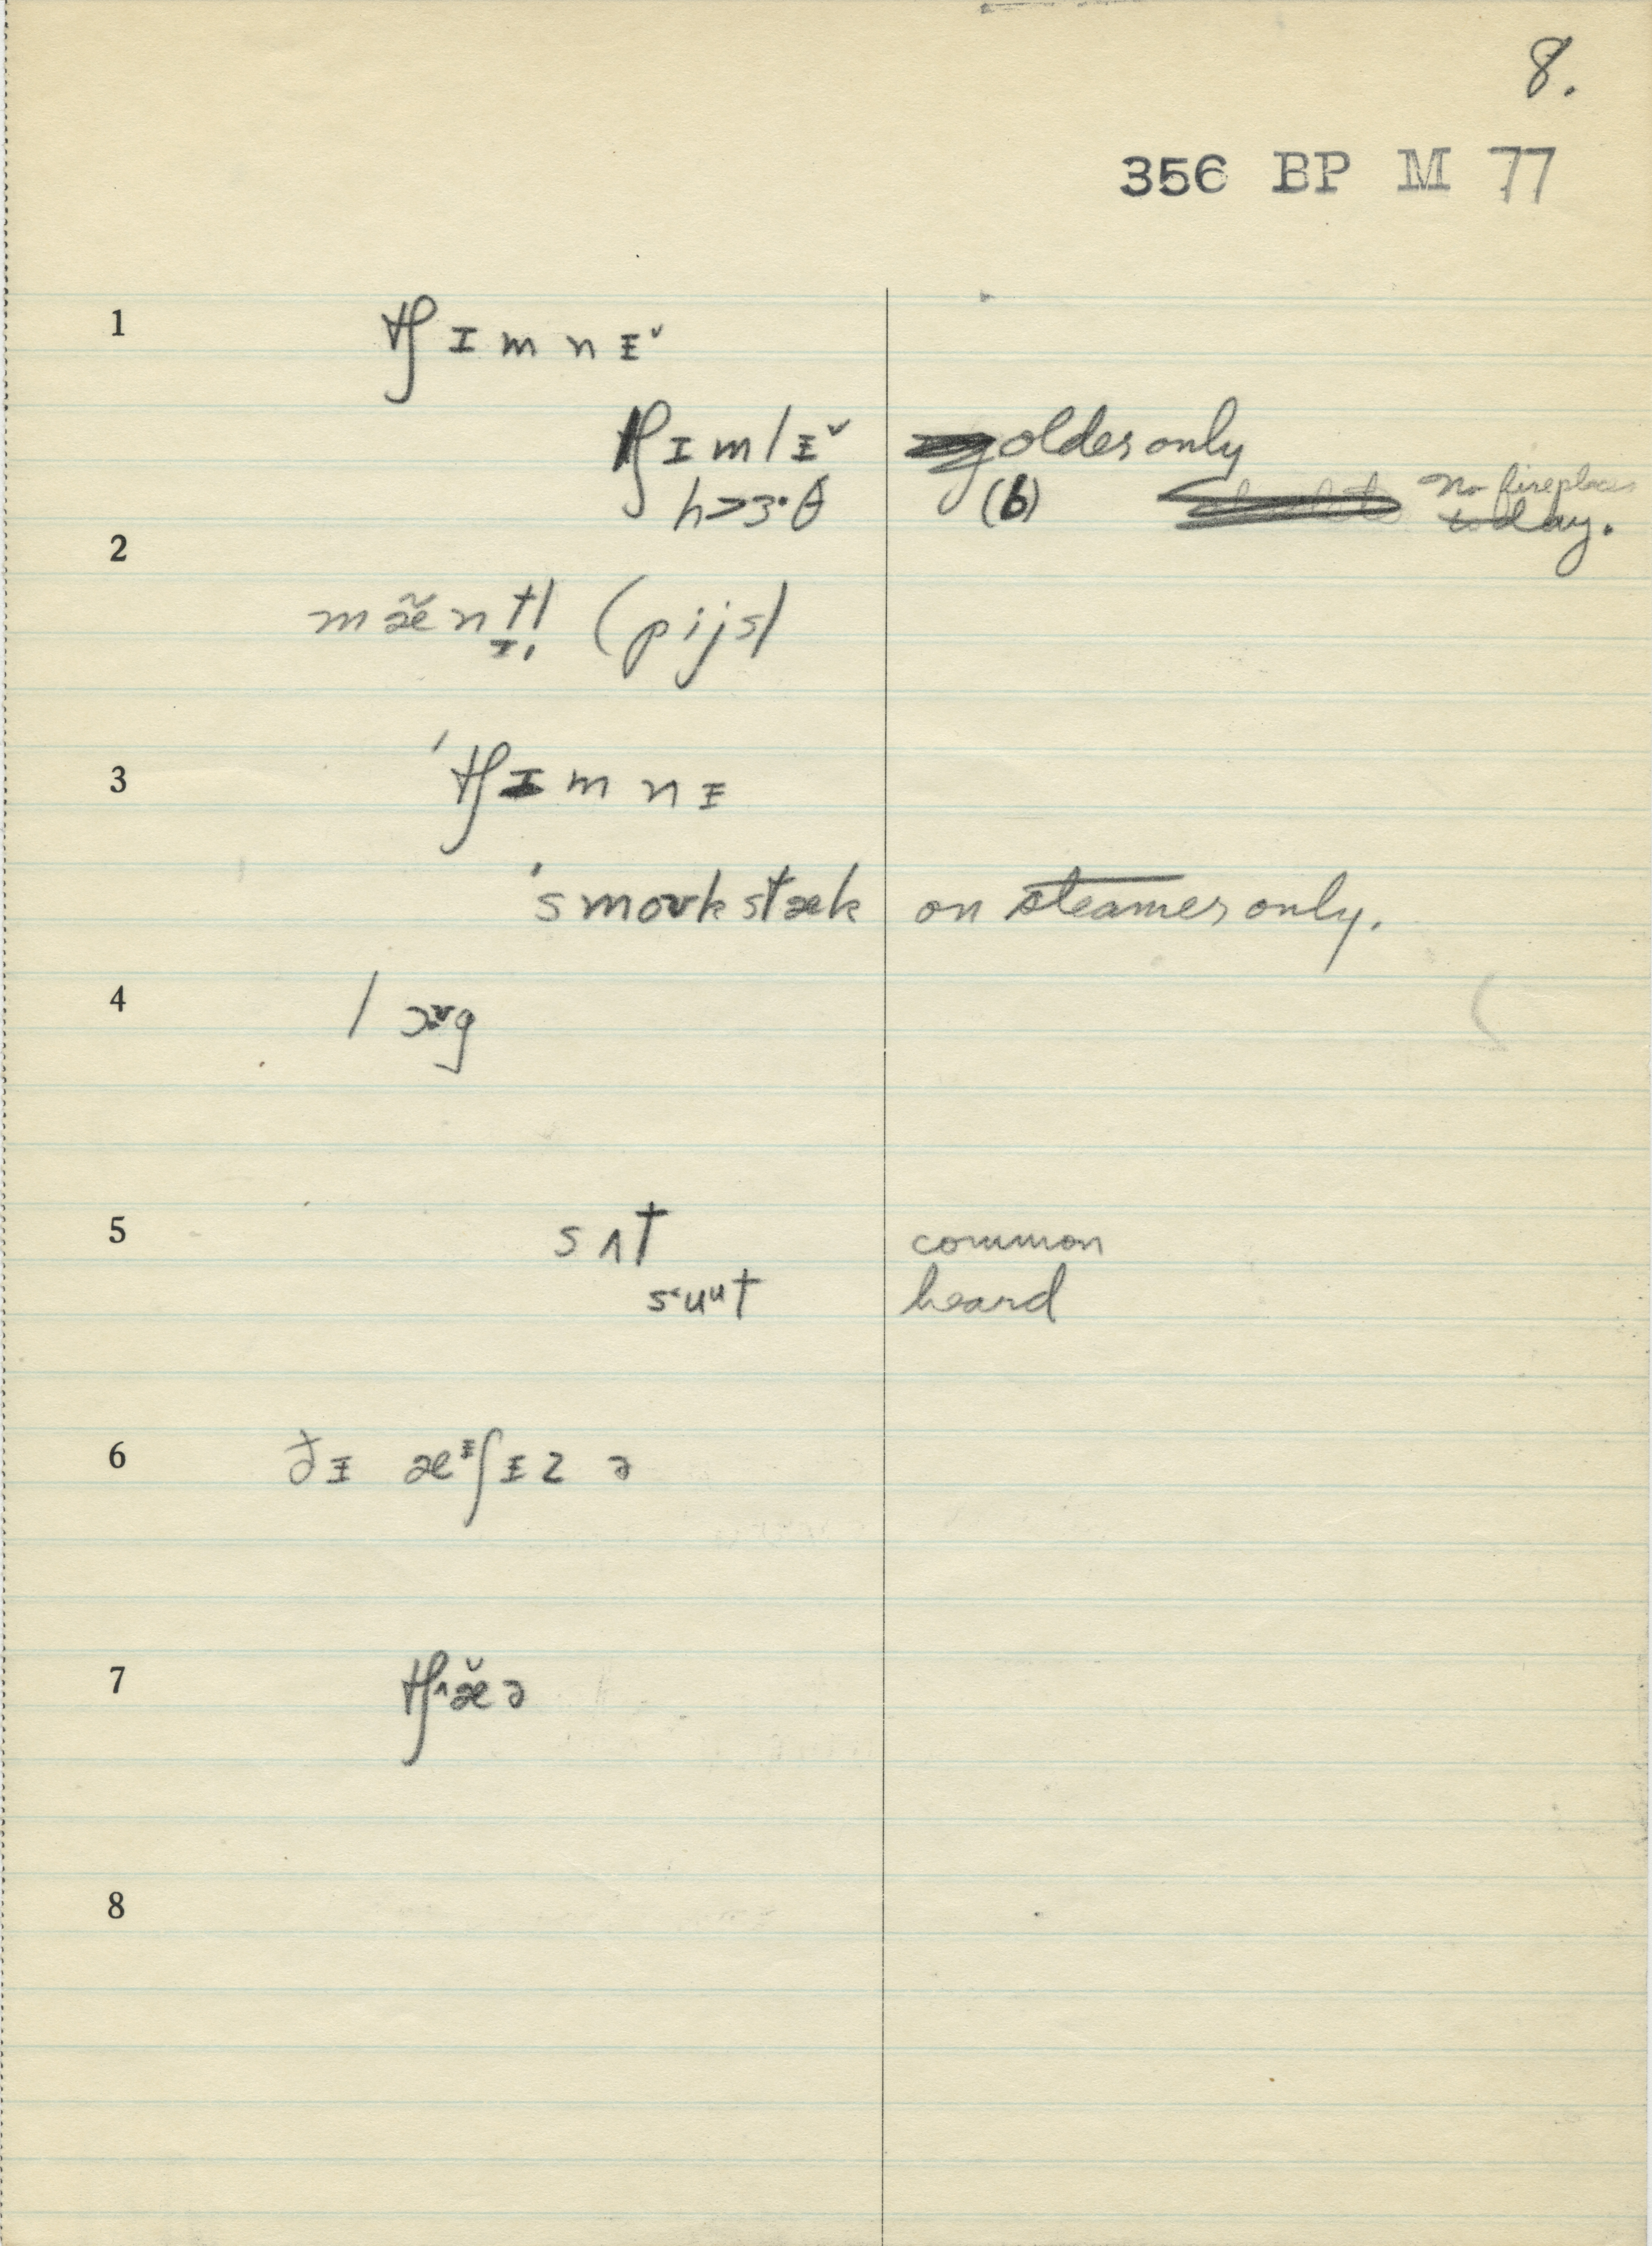 8.
356 BP M 77
1 tʃ ɪ m n ᵻ˅
tʃ ɪ m l ᵻ˅ older only
h>ɜ·θ (b) No fireplaces
today.
2
mæ̃ntl̩ (pijs)
3 'tʃ ɪ m n ᵻ
'smoʊkstæk on steamer only.
4 l ɔg
5 s ʌ t common
sᵘut heard
6 ðᵻ æᵻʃᵻz ə
7 tʃæ˅ə
8